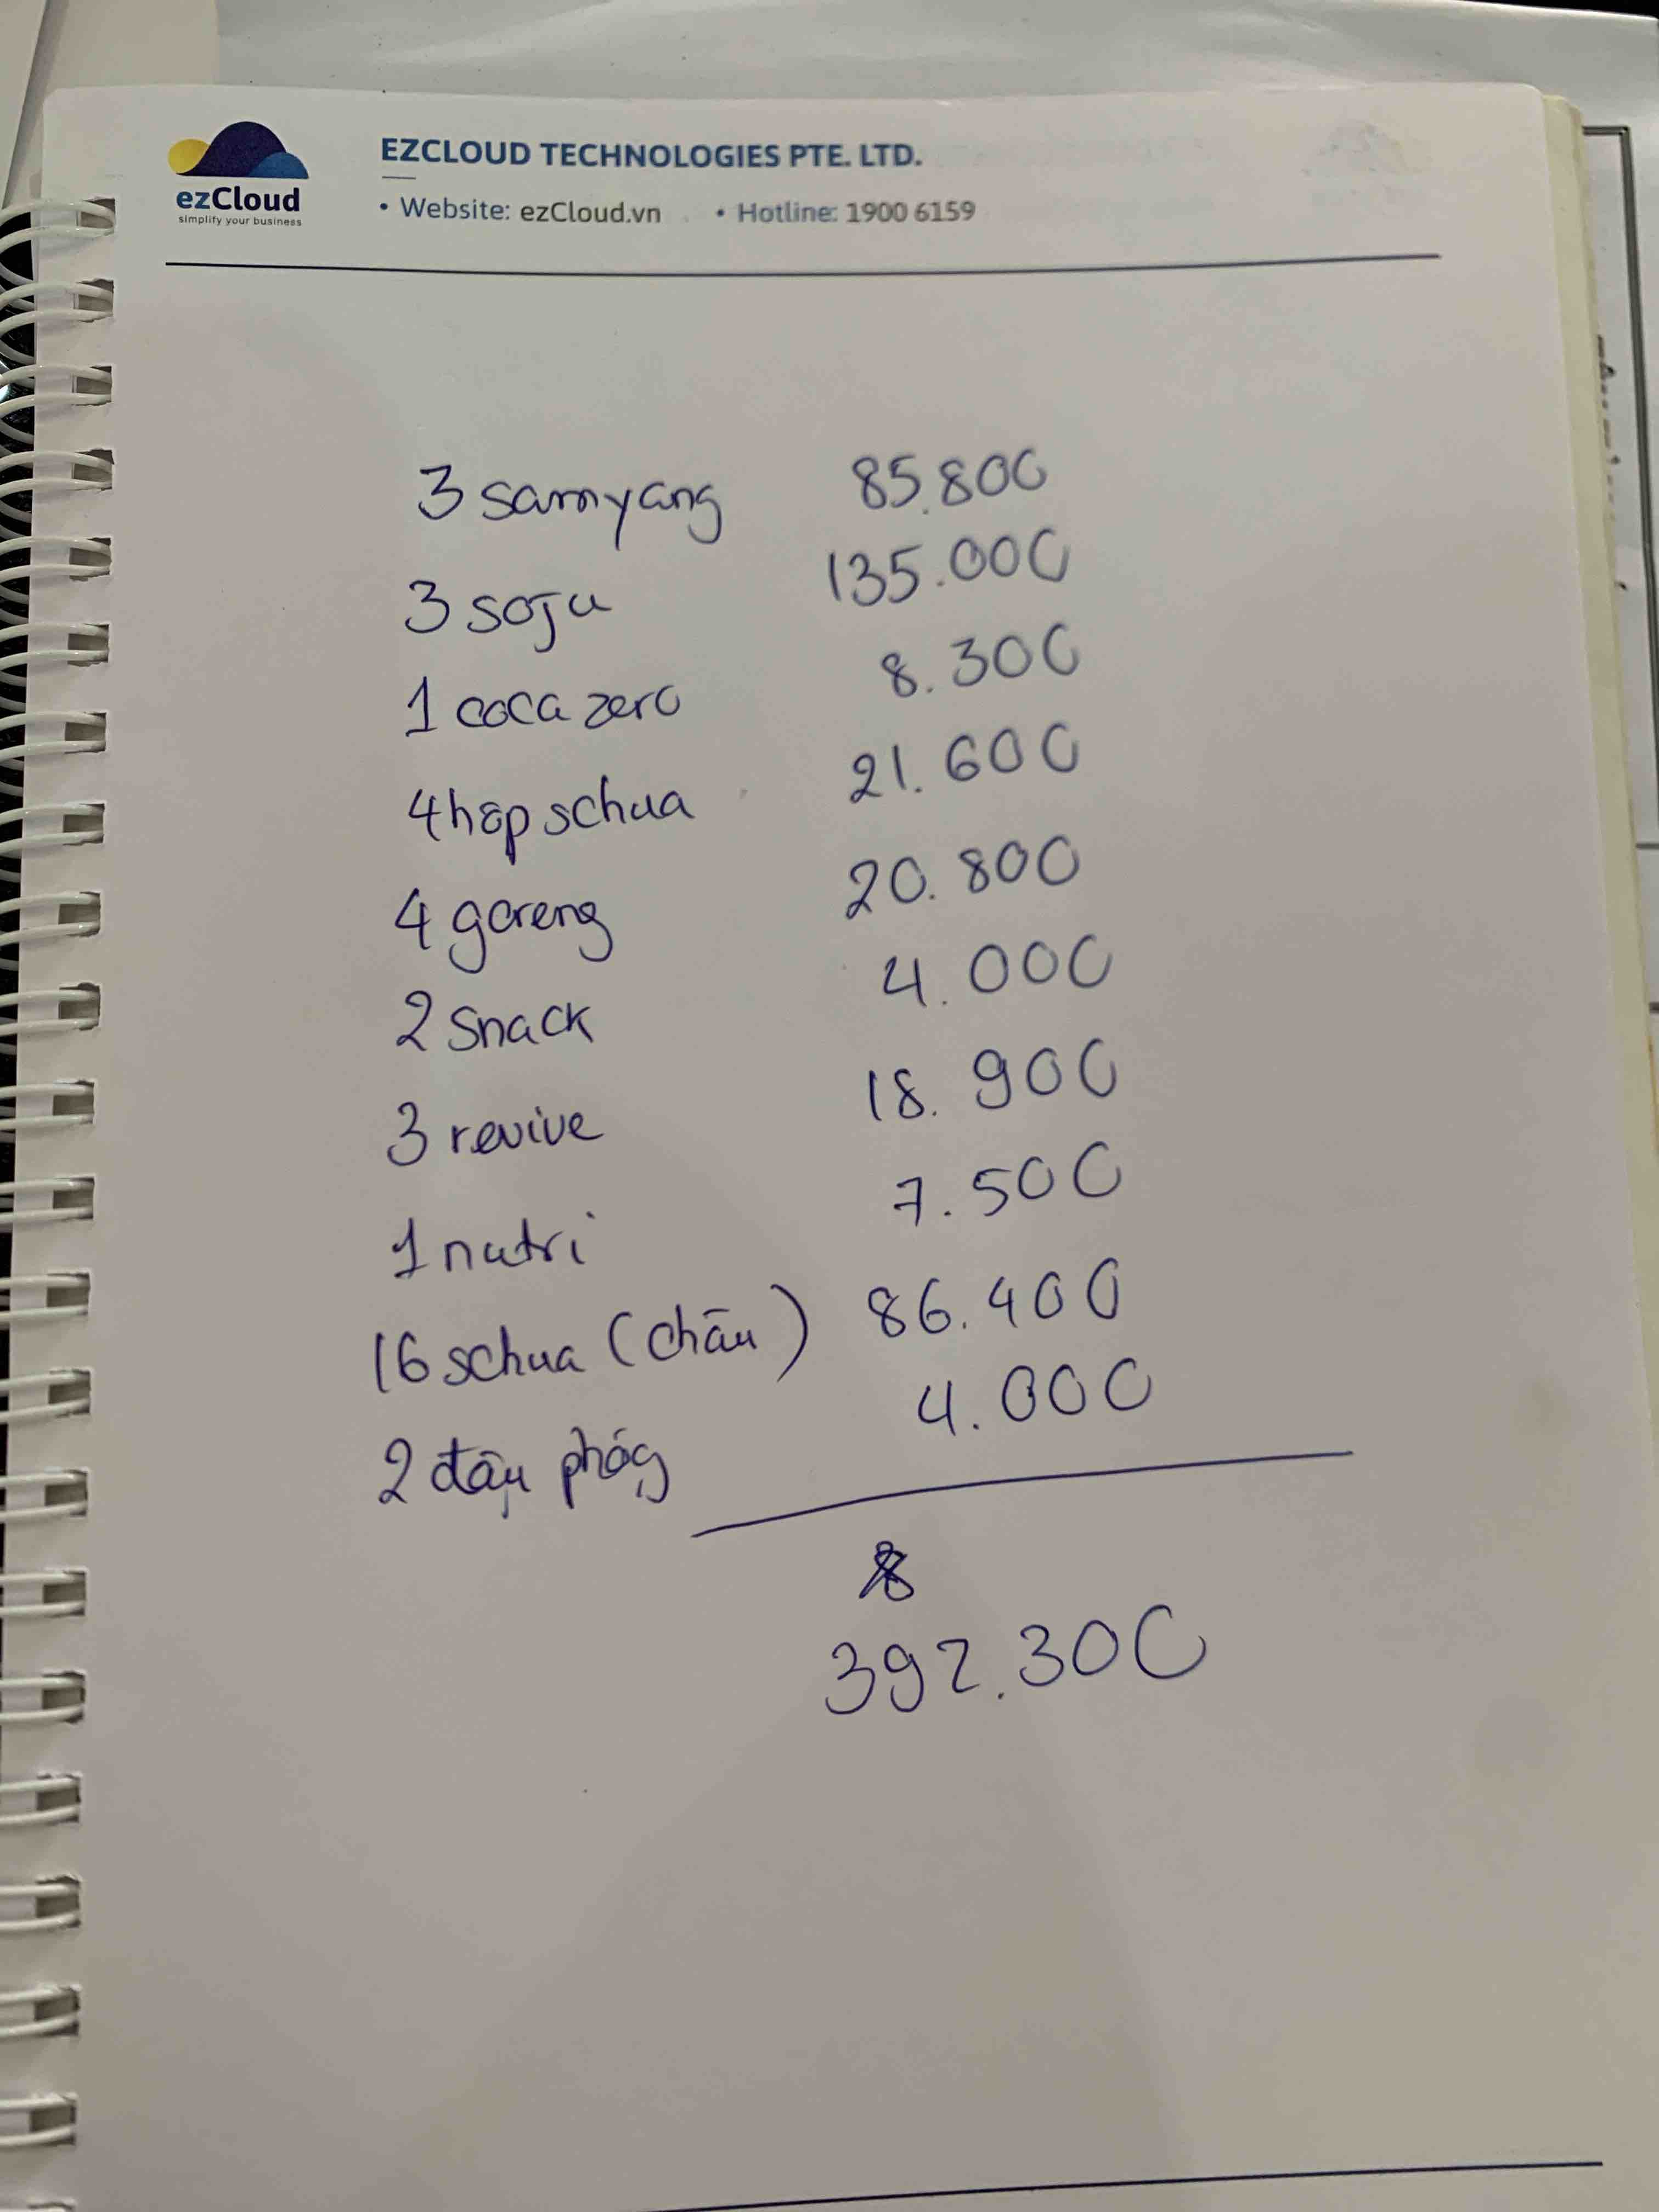 ezCloud
simplify your business
EZCLOUD TECHNOLOGIES PTE. LTD.
• Website: ezCloud.vn • Hotline: 1900 6159
3 samyang 85.800
3 soju 135.000
1 coca zero 8.300
4 hộp schua 21.600
4 goreng 20.800
2 snack 4.000
3 revive 18.900
1 nutri 7.500
16 schua (châu) 86.400
2 đậu phóg 4.000
392.300